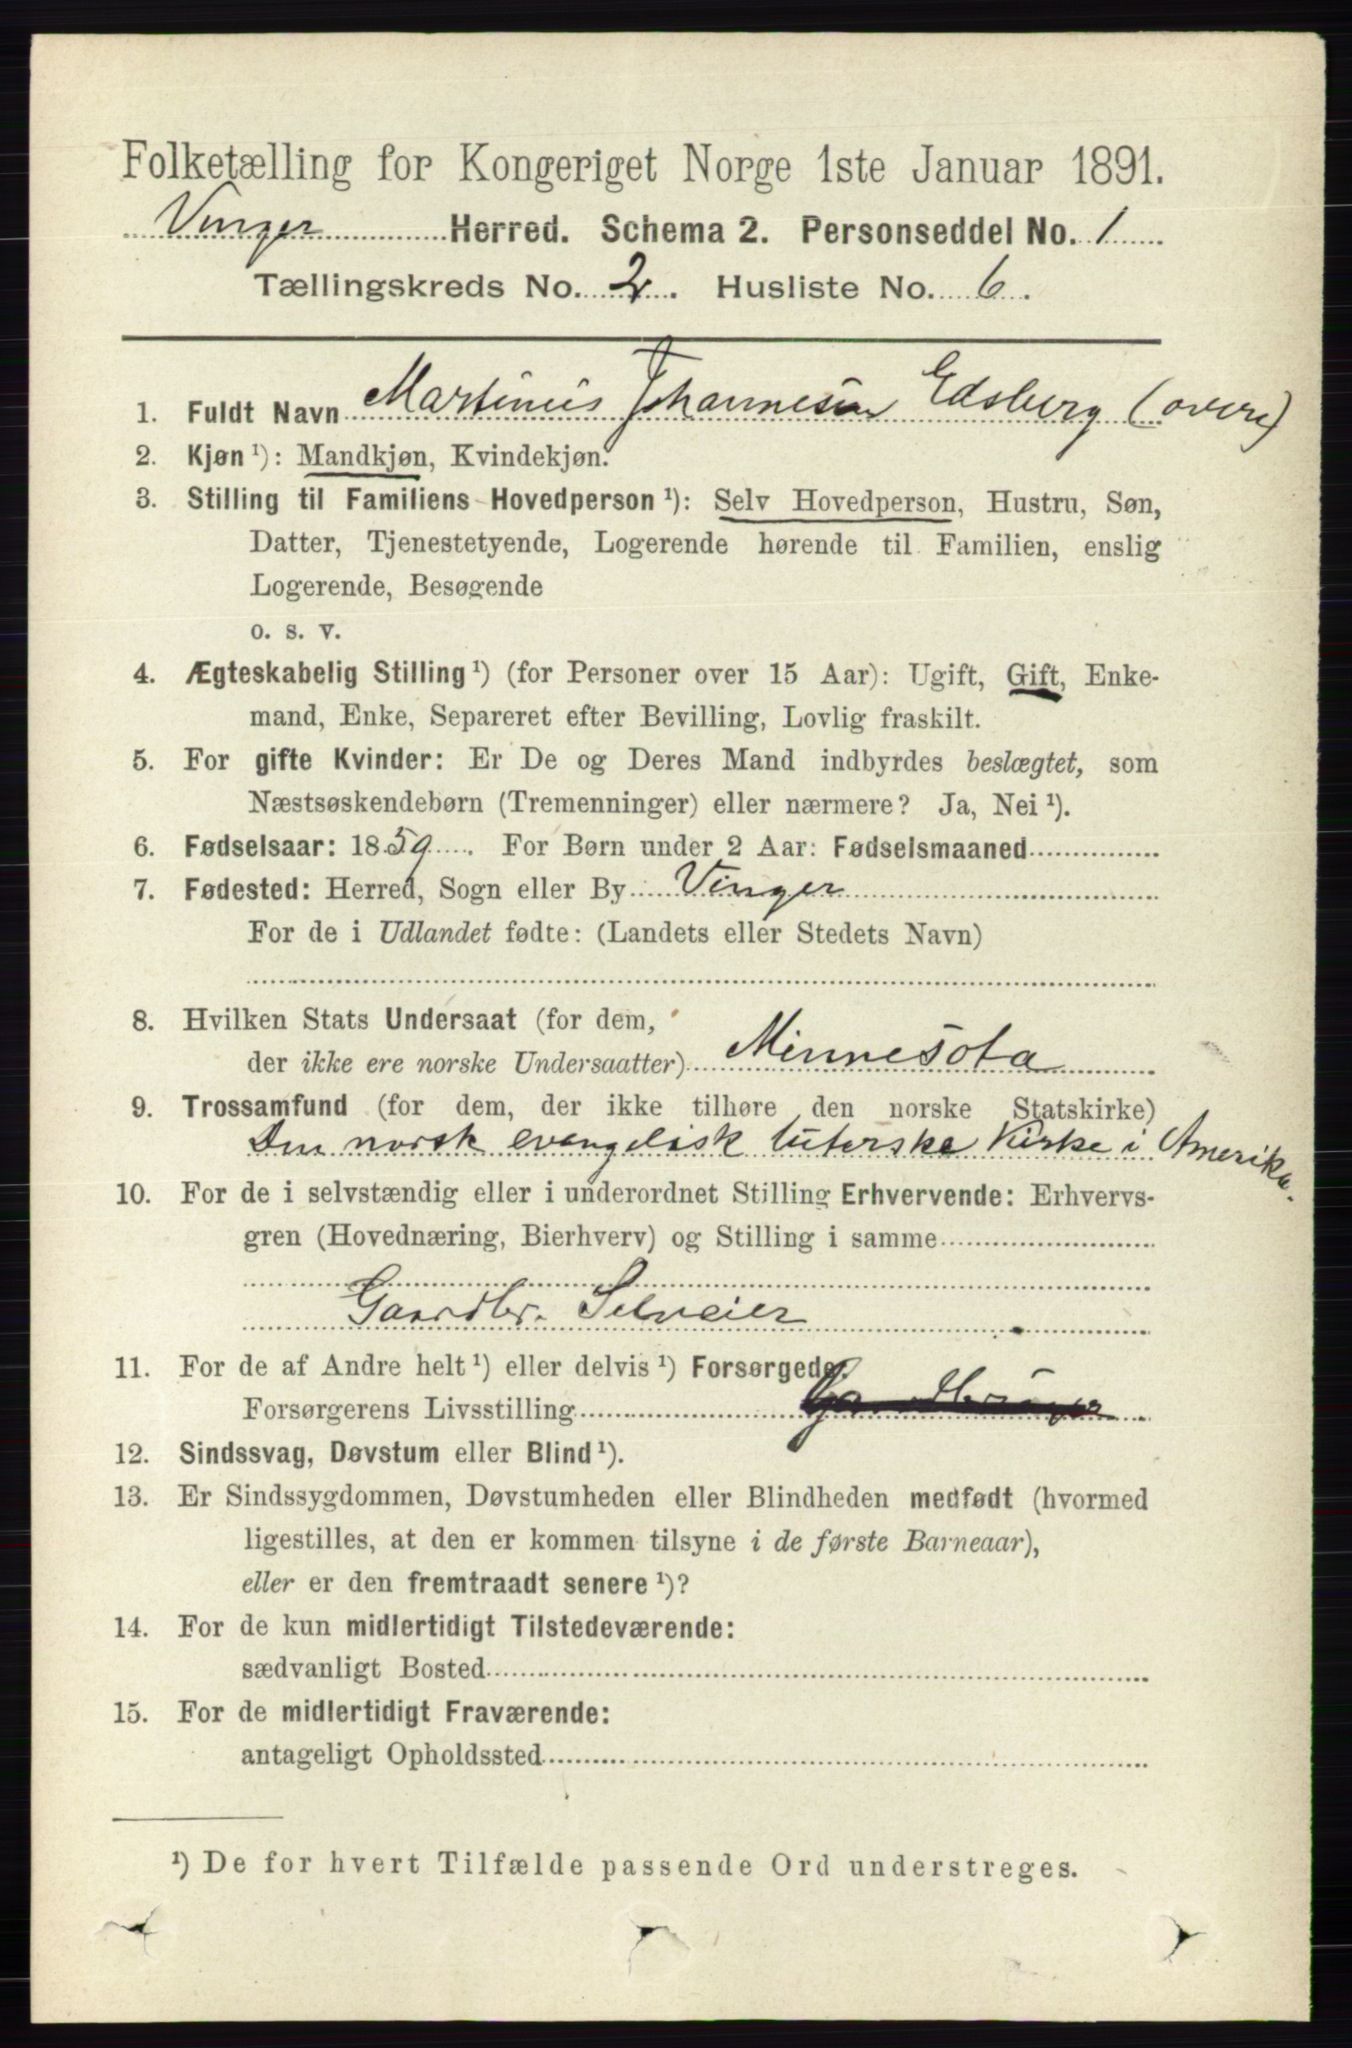 Folketælling for Kongeriget Norge 1ste Januar 1891.
Vinger Herred. Schema 2. Personseddel No. 1
Tællingskreds No. 2. Husliste No. 6.
1. Fuldt Navn Martinus Johannesen Edsberg (øvre)
2. Kjøn ¹): Mandkjøn, Kvindekjøn.
3. Stilling til Familiens Hovedperson ¹): Selv Hovedperson, Hustru, Søn,
Datter, Tjenestetyende, Logerende hørende til Familien, enslig
Logerende, Besøgende
o. s. v.
4. Ægteskabelig Stilling ¹) (for Personer over 15 Aar): Ugift, Gift, Enke-
mand, Enke, Separeret efter Bevilling, Lovlig fraskilt.
5. For gifte Kvinder: Er De og Deres Mand indbyrdes beslægtet, som
Næstsøskendebørn (Tremenninger) eller nærmere? Ja, Nei ¹).
6. Fødselsaar: 1859. For Børn under 2 Aar: Fødselsmaaned
7. Fødested: Herred, Sogn eller By Vinger
For de i Udlandet fødte: (Landets eller Stedets Navn)
8. Hvilken Stats Undersaat (for dem,
der ikke ere norske Undersaatter) Minnesota
9. Trossamfund (for dem, der ikke tilhøre den norske Statskirke)
Den norsk evangelisk luterske Kirke i Amerika.
10. For de i selvstændig eller i underordnet Stilling Erhvervende: Erhvervs-
gren (Hovednæring, Bierhverv) og Stilling i samme
Gaardbr. Selveier
11. For de af Andre helt ¹) eller delvis ¹) Forsørgede:
Forsørgerens Livsstilling
12. Sindssvag, Døvstum eller Blind ¹).
13. Er Sindssygdommen, Døvstumheden eller Blindheden medfødt (hvormed
ligestilles, at den er kommen tilsyne i de første Barneaar),
eller er den fremtraadt senere ¹)?
14. For de kun midlertidigt Tilstedeværende:
sædvanligt Bosted
15. For de midlertidigt Fraværende:
antageligt Opholdssted
¹) De for hvert Tilfælde passende Ord understreges.